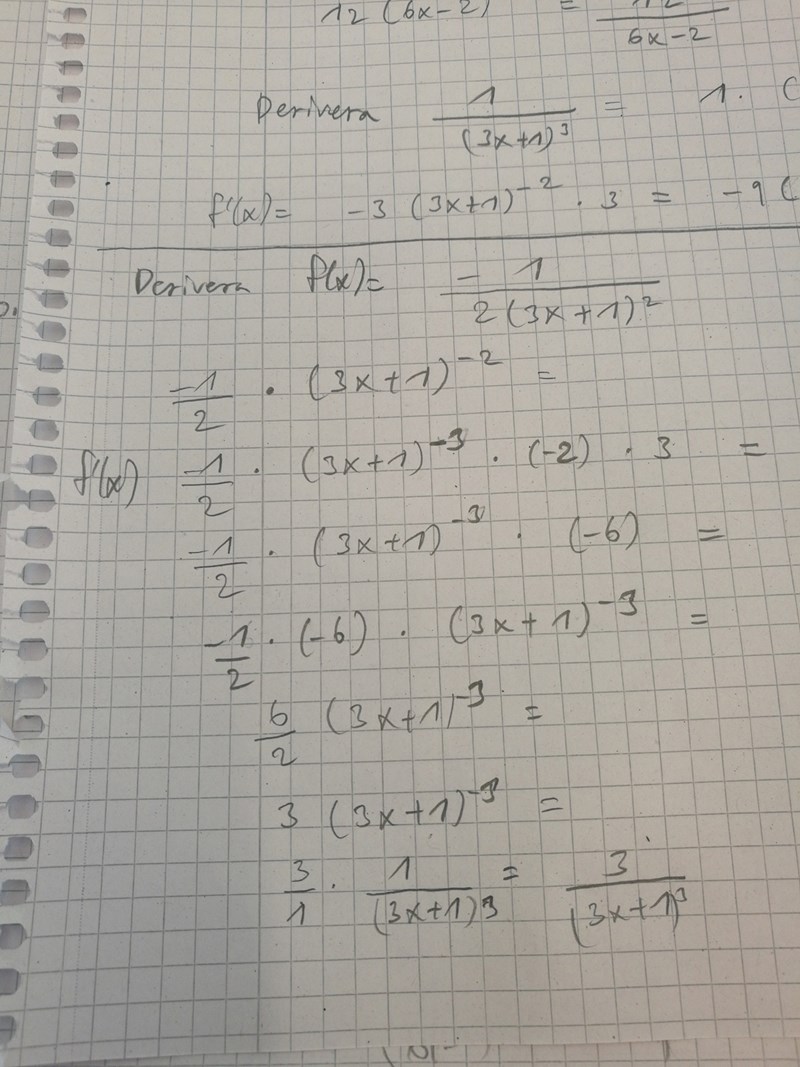 12 (6x-2) = 12/(6x-2)
Derivera 1/(3x+1)³ = 1. (
f'(x)= -3 (3x+1)⁻² · 3 = -9 (
Derivera f(x)= - 1/(2(3x+1)²)
-1/2 · (3x+1)⁻² =
f'(x) -1/2 · (3x+1)⁻³ · (-2) · 3 =
-1/2 · (3x+1)⁻³ · (-6) =
-1/2 · (-6) · (3x+1)⁻³ =
6/2 (3x+1)⁻³ =
3 (3x+1)⁻³ =
3/1 · 1/(3x+1)³ = 3/(3x+1)³